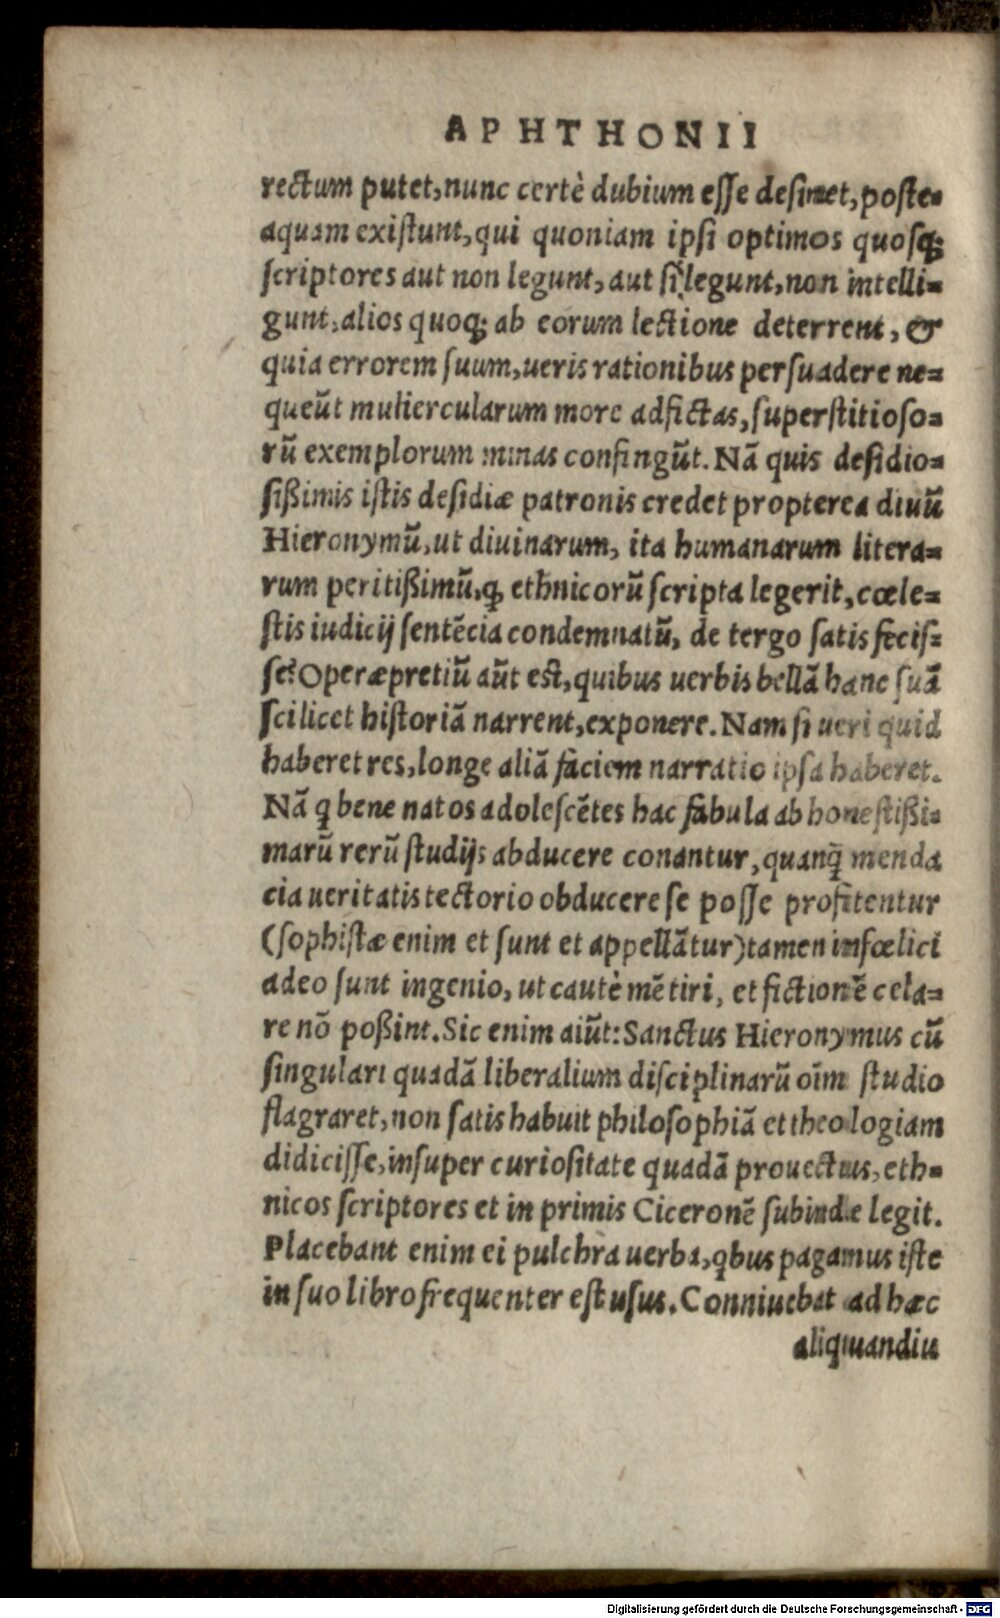 APHTHONII
rectum putet, nunc certè dubium esse desinet, poste-
aquam existunt, qui quoniam ipsi optimos quosq;
scriptores aut non legunt, aut si legunt, non intelli-
gunt, alios quoq; ab eorum lectione deterrent, &
quia errorem suum, ueris rationibus persuadere ne-
queũt muliercularum more adfictas, superstitioso-
rũ exemplorum minas confingũt. Nã quis desidio-
sißimis istis desidiæ patronis credet propterea diuũ
Hieronymũ, ut diuinarum, ita humanarum litera-
rum peritißimũ, ꝙ ethnicorũ scripta legerit, cœle-
stis iudicij sentẽcia condemnatũ, de tergo satis fecis-
se? Operæpretiũ aũt est, quibus uerbis bellã hanc suã
scilicet historiã narrent, exponere. Nam si ueri quid
haberet res, longe aliã faciem narratio ipsa haberet.
Nã ꝗ bene natos adolescẽtes hac fabula ab honestißi-
marũ rerũ studijs abducere conantur, quanꝗ̃ menda
cia ueritatis tectorio obducere se posse profitentur
(sophistæ enim et sunt et appellãtur) tamen infœlici
adeo sunt ingenio, ut cautè mẽtiri, et fictionẽ cela-
re nõ poßint. Sic enim aiũt: Sanctus Hieronymus cũ
singulari quadã liberalium disciplinarũ oĩm studio
flagraret, non satis habuit philosophiã et theologiam
didicisse, insuper curiositate quadã prouectus, eth-
nicos scriptores et in primis Ciceronẽ subinde legit.
Placebant enim ei pulchra uerba, ꝗbus paganus iste
in suo libro frequenter est usus. Conniuebat ad hæc
aliquandiu
Digitalisierung gefördert durch die Deutsche Forschungsgemeinschaft - DFG